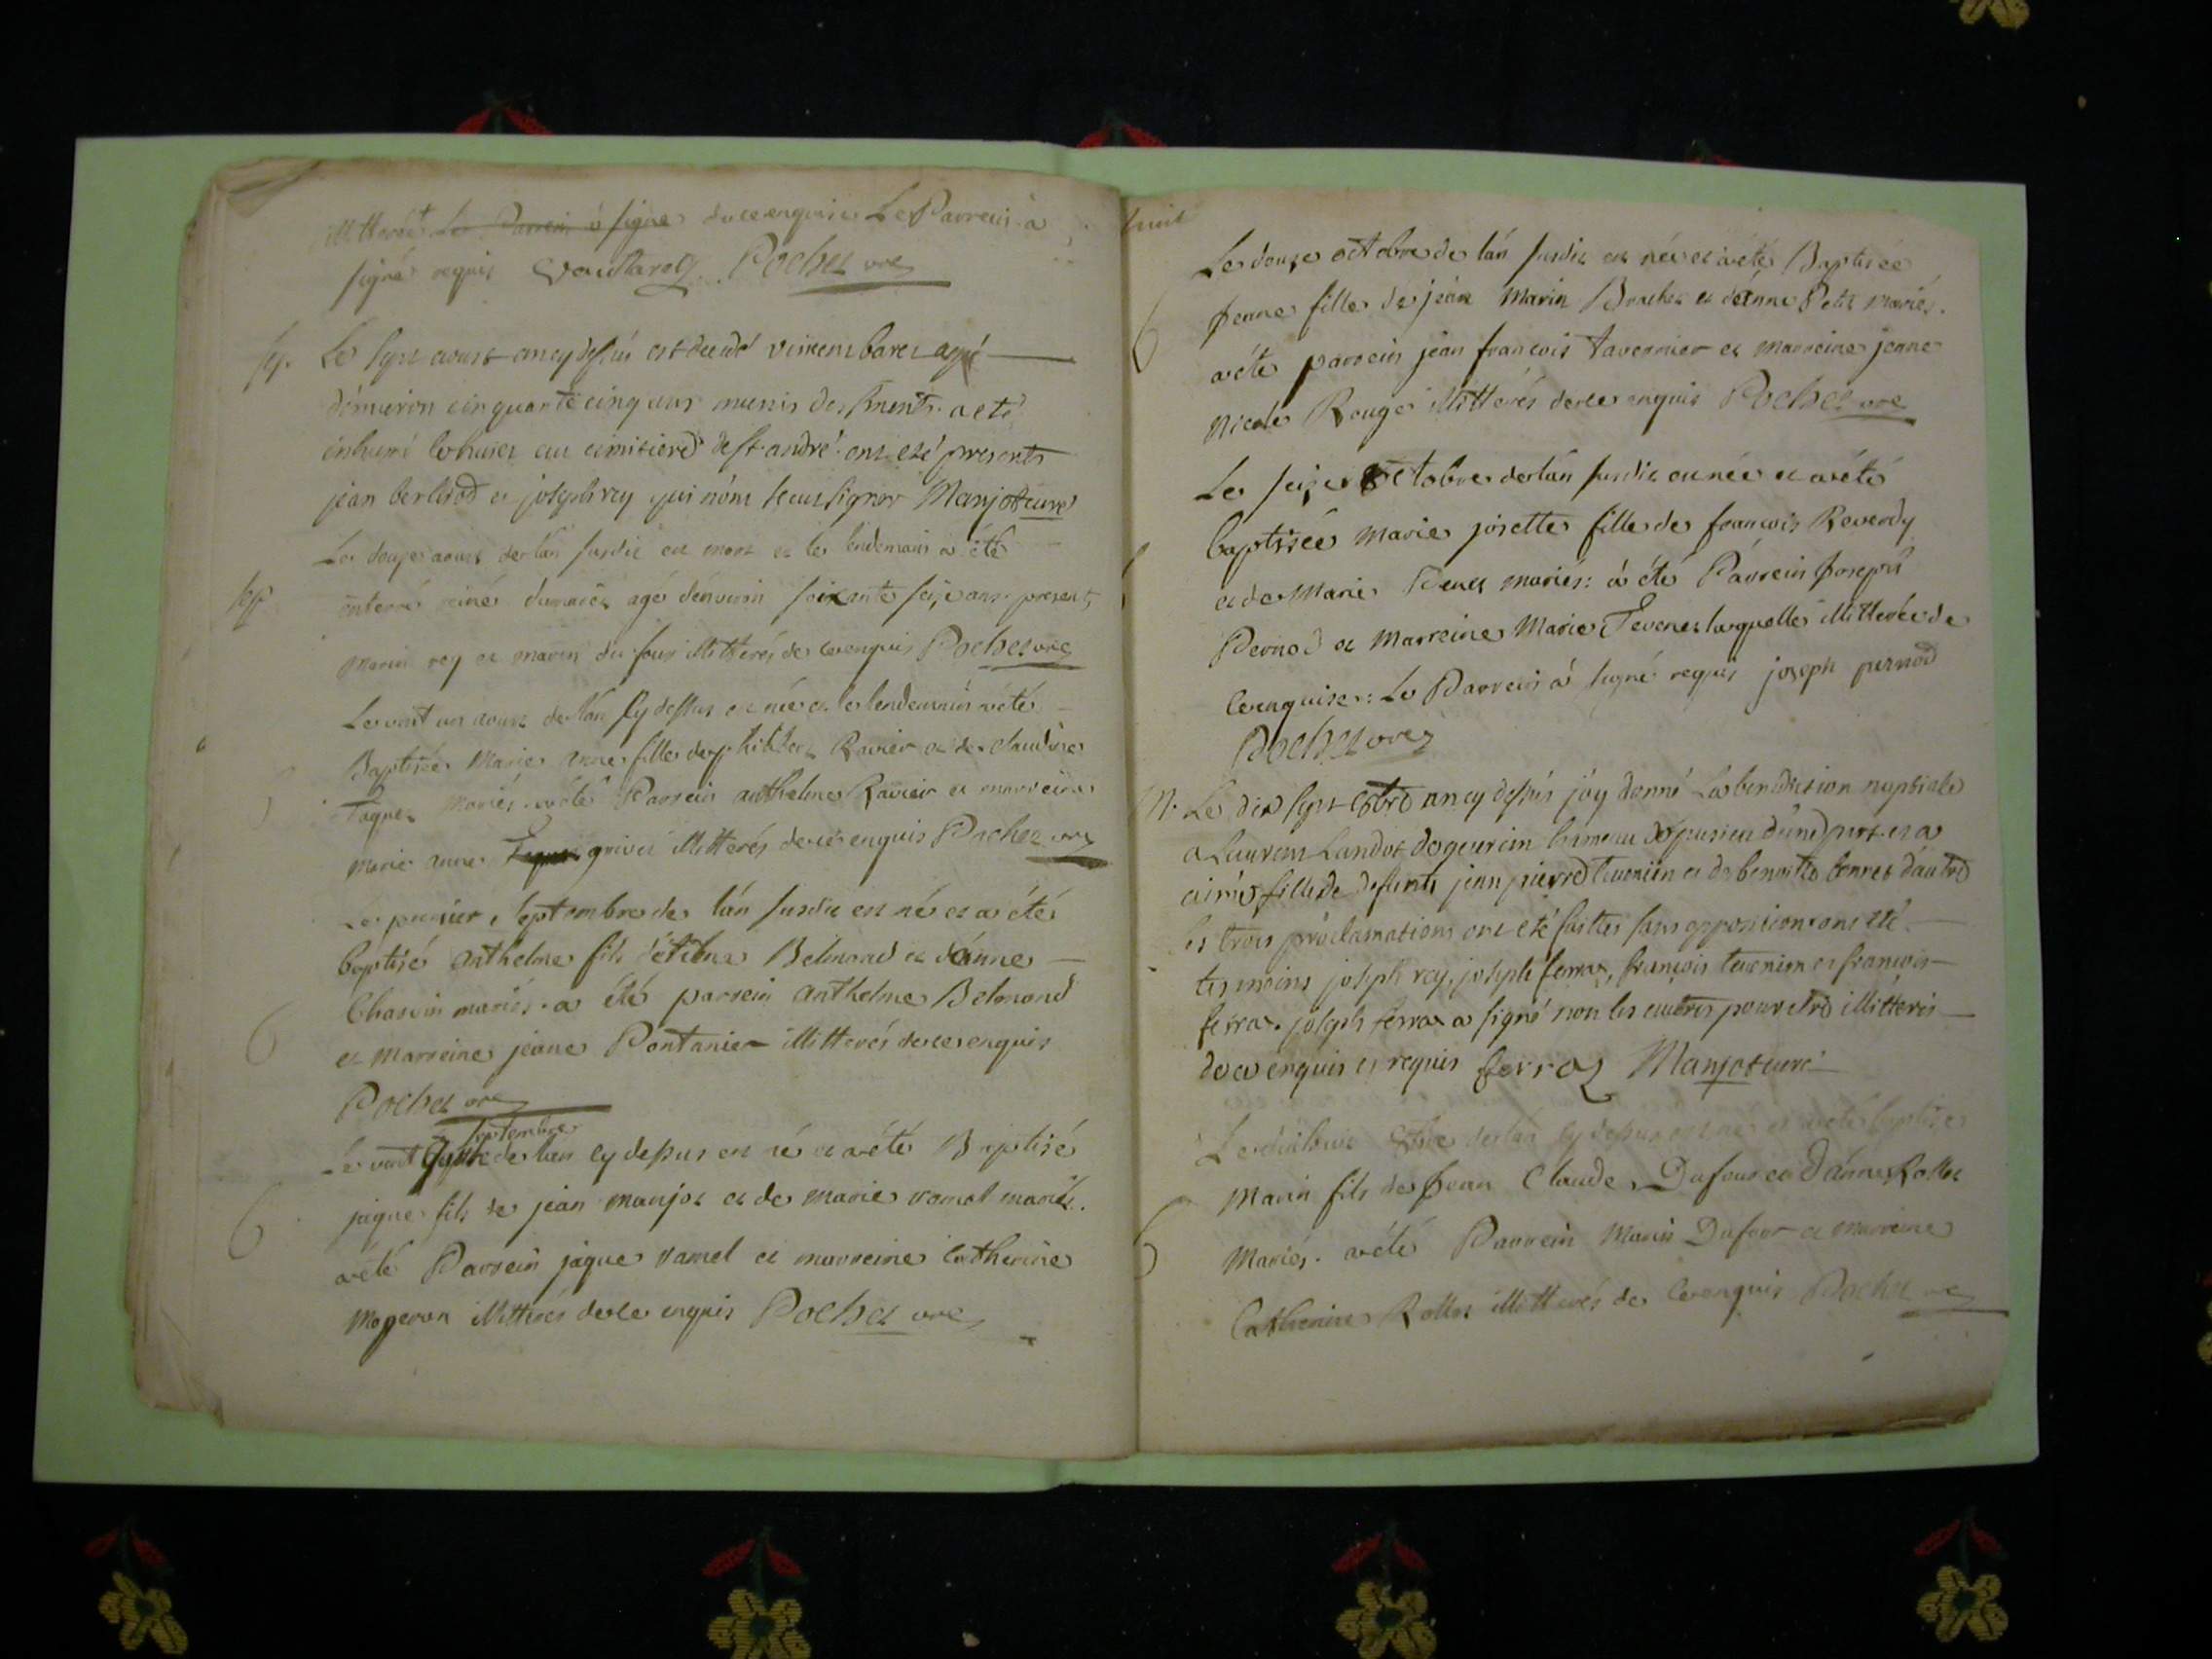 illitterée Le Parrein a signé de ce enquise Le Parrein a
signé requis Poches vre
sep. Le sept aoust an cy dessus est decedé vincent baret agé
d'environ cinquante cinq ans munis des sments. a eté
inhumé le huict au cimitiere de st. andré. ont eté presents
jean berliod et joseph rey qui n'ont sceut signer Manjot curé
Le douze aoust de l'an susdit est mort et le lendemain a été
sep enterré aimé dumaret agé d'environ soixante seize ans. presents
marin rey et marin du four illitterés de ce enquis Poches vre
Le vint un aoust de l'an cy dessus est née et le lendemain a été
Baptisée Marie anne fille de philiber Ravier et de claudine
Taques mariés. a été Parrein anthelme Ravier et marreine
marie anne grivet illitterés de ce enquis Poches vre
Le premier septembre de l'an susdit est né et a été
baptisé anthelme fils d'etienne Belmond et d'anne
Chasvin mariés. a été parrein anthelme Belmond
et marreine jeane Pontanier illitterés de ce enquis
Poches vre
septembre
Le vint sept de l'an cy dessus est né et a été Baptisé
jaque fils de jean manjot et de marie vamel mariés.
a été Parrein jaque vamel et marreine catherine
mageron illitterés de ce enquis Poches vre
huit
Le douze octobre de l'an susdit est née et a été Baptisée
Jeanne fille de jean Marin Brachet et d'Anne Petit mariés.
a été parrein jean francois tavernier et marreine jeanne
Nicole Rouge illitterés de ce enquis Poches vre
Le seize octobre de l'an susdit est née et a été
baptisée marie josette fille de francois Reverdy
et de Marie mariés: a été Parrein Joseph
Pernod et Marreine Marie Tevenet laquelle illitterée de
ce enquise: Le Parrein a signé requis joseph pernod
Poches vre
M. Le dix sept 8bre an cy dessus j'ay donné La benediction nuptiale
a Laurent Landot de hameau de pusieu d'une part et a
aimée fille de defunts jean pierre tevenien et de benoitte d'autre
les trois proclamations ont eté faittes sans opposition. ont eté
tesmoins joseph rey, joseph ferraz, françois tevenien et francois
ferraz. joseph ferraz a signé non les autres pour etre illitterés
de ce enquis et requis ferraz Manjot curé
Le dixhuit 8bre de l'an cy dessus est né et a été baptisé
Marin fils de Jean Claude Dufour et d'Anne Rollet
Mariés. a été Parrein Marin Dufour et marreine
Catherine Rollet illitterés de ce enquis Poches vre